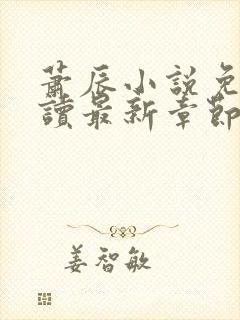 蕭辰小說免
讀最新章節
姜智敏